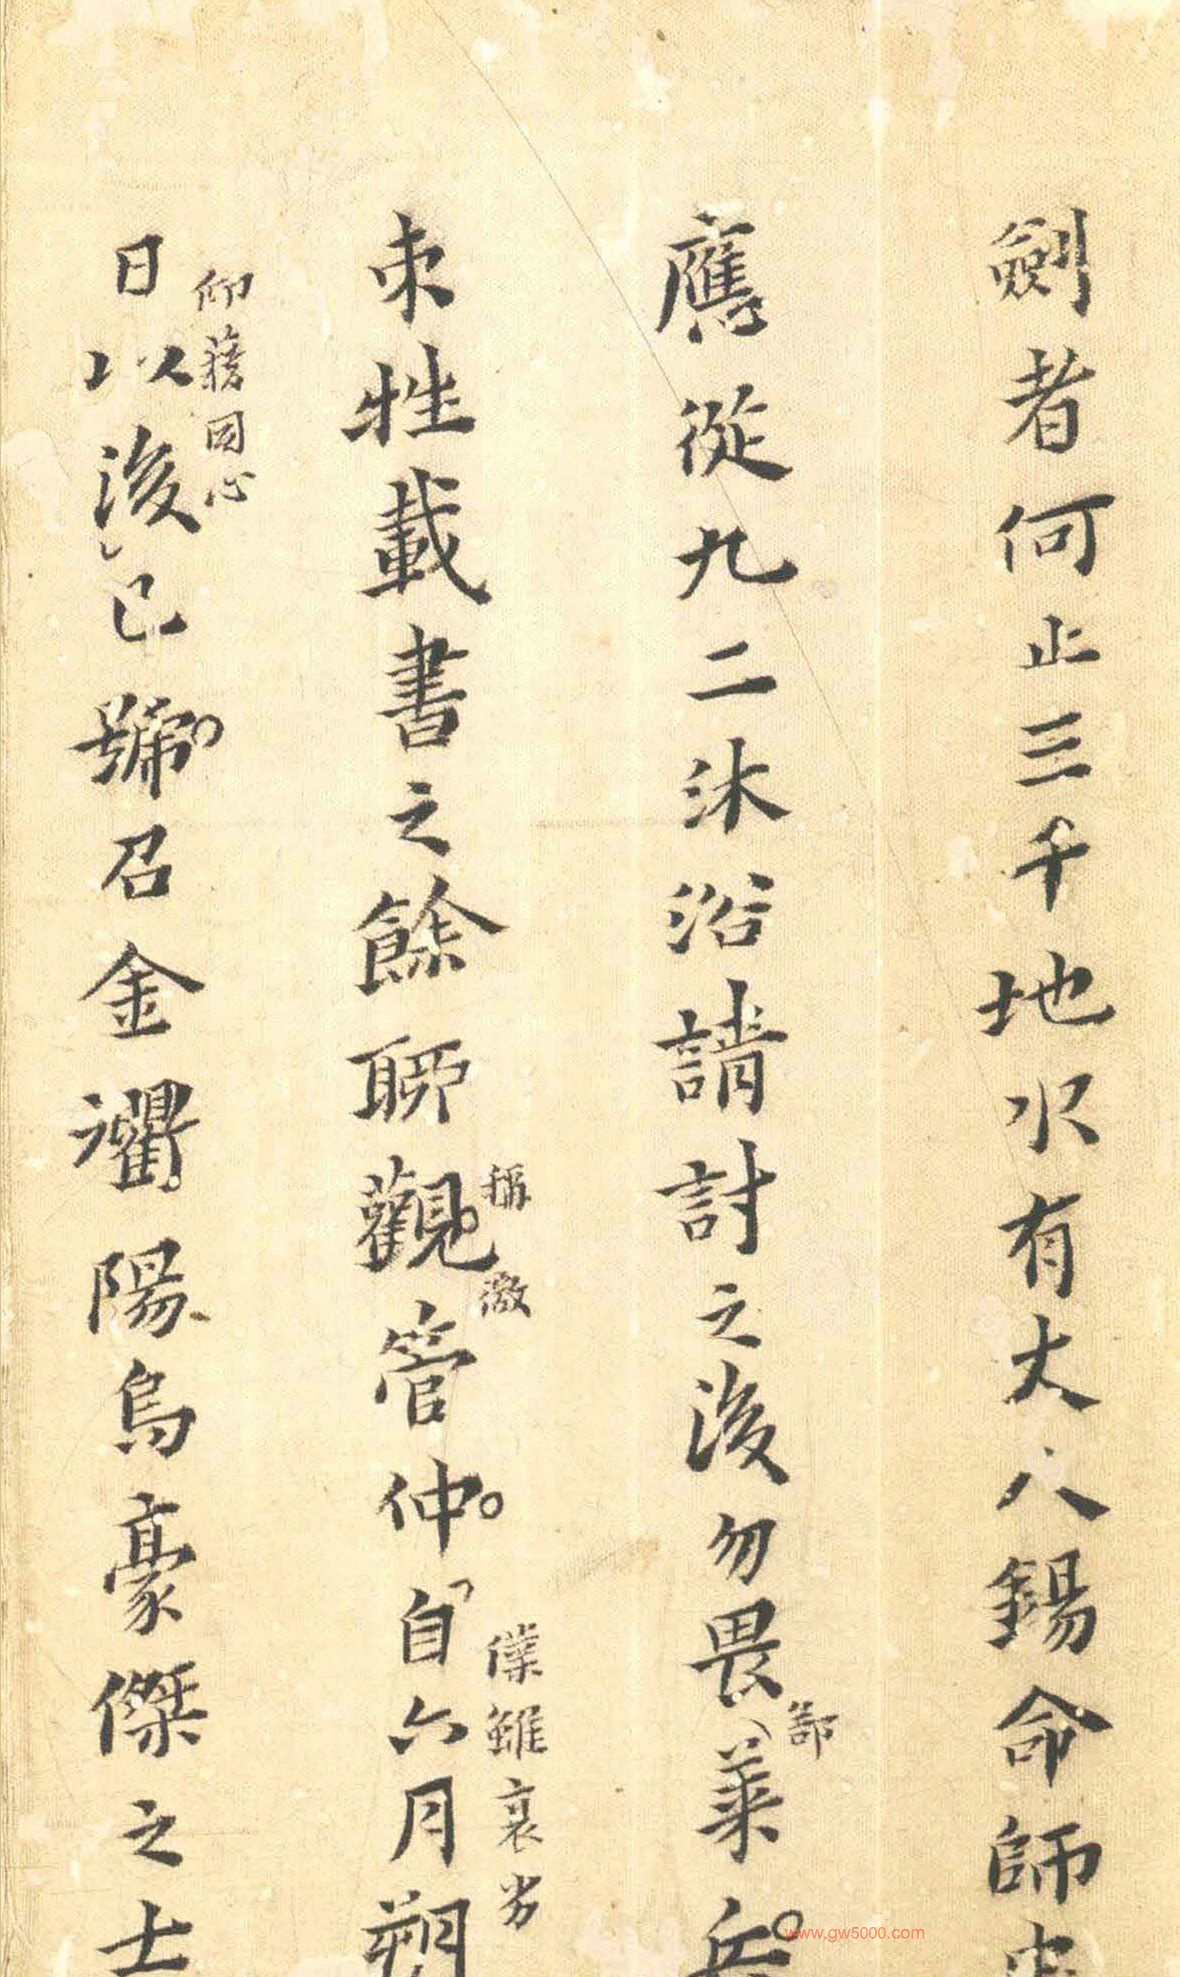 劍者何止三千地水有大八錫命師中
應從九二沐浴請討之後勿畏萊兵
部
束牲載書之餘聊觀管仲自六月朔
稱激
僕雖衰劣
日以後已號召金衢陽烏豪傑之士
仰藉同心
www.gw5000.com